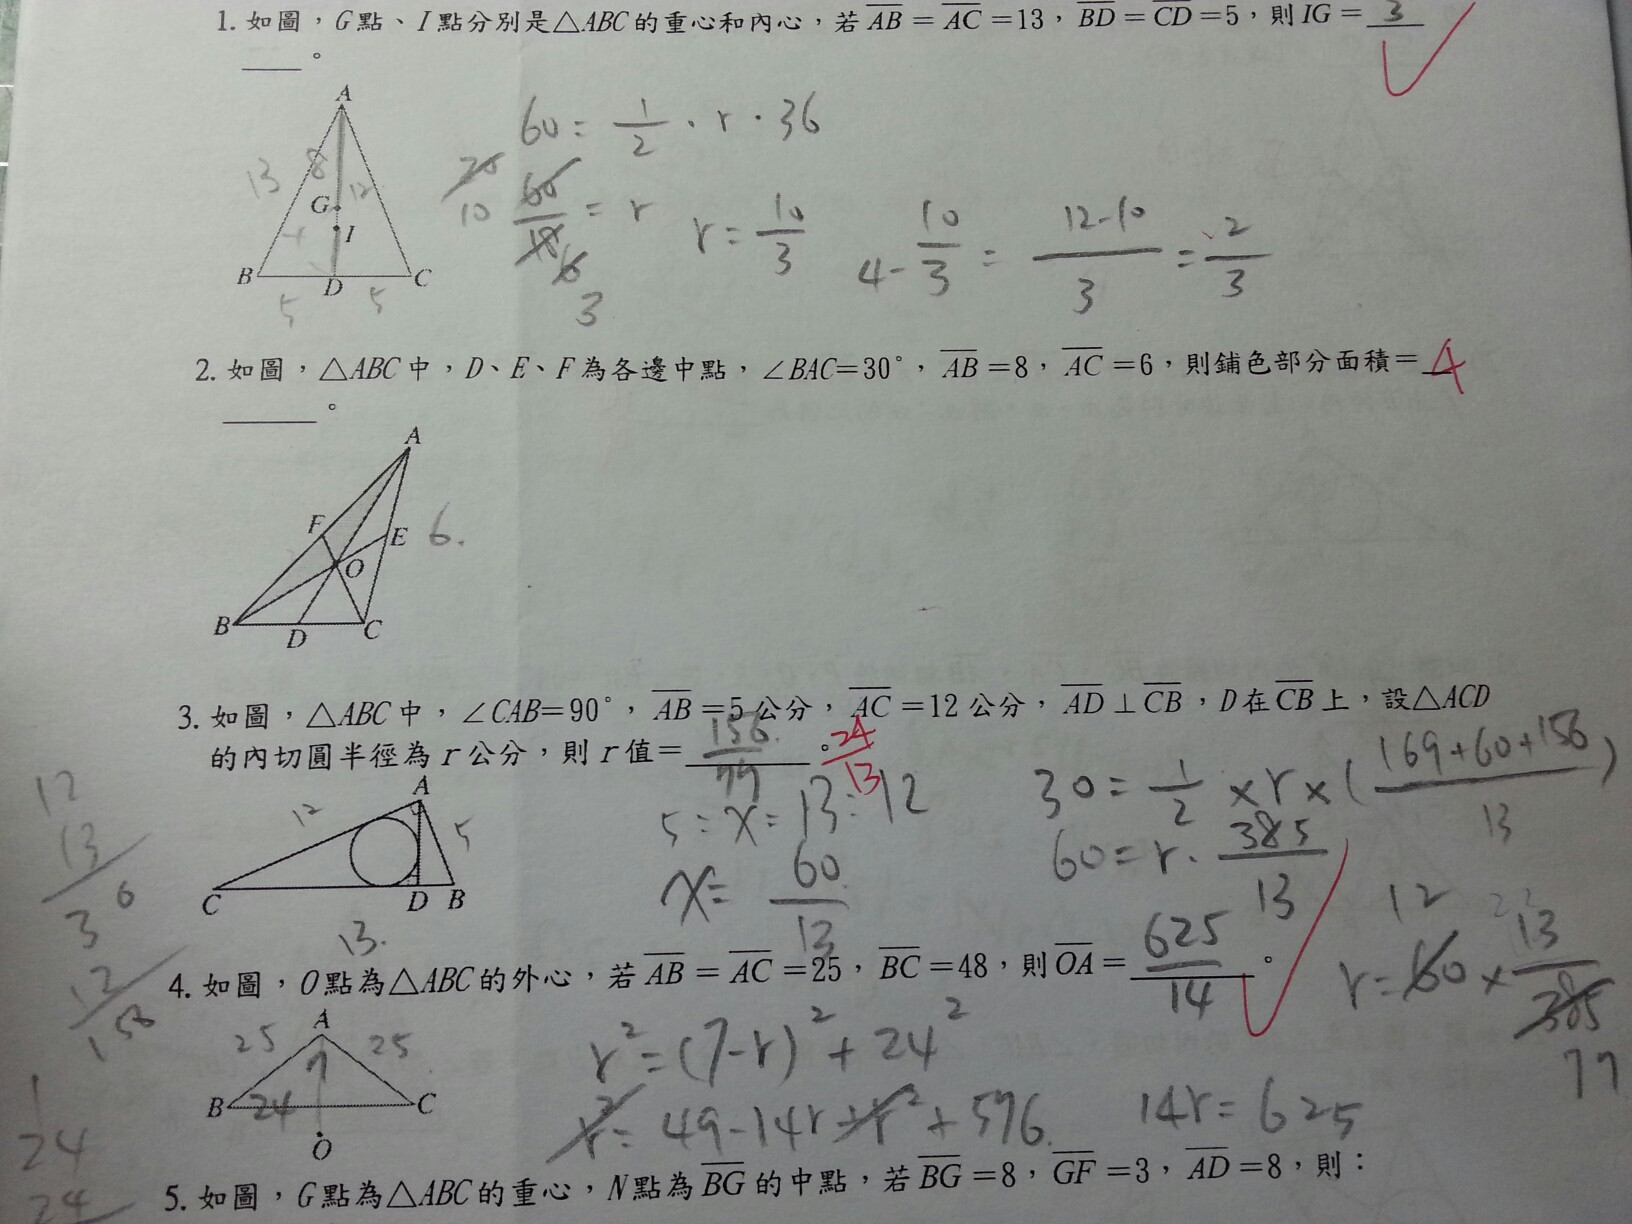 1. 如圖，G點、I點分別是△ABC的重心和內心，若AB=AC=13，BD=CD=5，則IG=3
____。
A
13 8 12
G
4 I
B D C
5 5
60=1/2·r·36
20
10 60/18=r
6
3
r=10/3
4-10/3=(12-10)/3=2/3
2. 如圖，△ABC中，D、E、F為各邊中點，∠BAC=30°，AB=8，AC=6，則鋪色部分面積=4
____。
A
F E 6.
O
B D C
3. 如圖，△ABC中，∠CAB=90°，AB=5公分，AC=12公分，AD⊥CB，D在CB上，設△ACD
的內切圓半徑為r公分，則r值=156/77。 24/13
A
12 5
C D B
13.
5:x=13:12
x=60/13
30=1/2×r×((169+60+156)/13)
60=r·385/13
12
r=60×13/385
77
12
13
36
12
156
4. 如圖，O點為△ABC的外心，若AB=AC=25，BC=48，則OA=625/14。
A
25 25
7
B 24 C
O
r²=(7-r)²+24²
r²=49-14r+r²+576.
14r=625
24
24
5. 如圖，G點為△ABC的重心，N點為BG的中點，若BG=8，GF=3，AD=8，則：